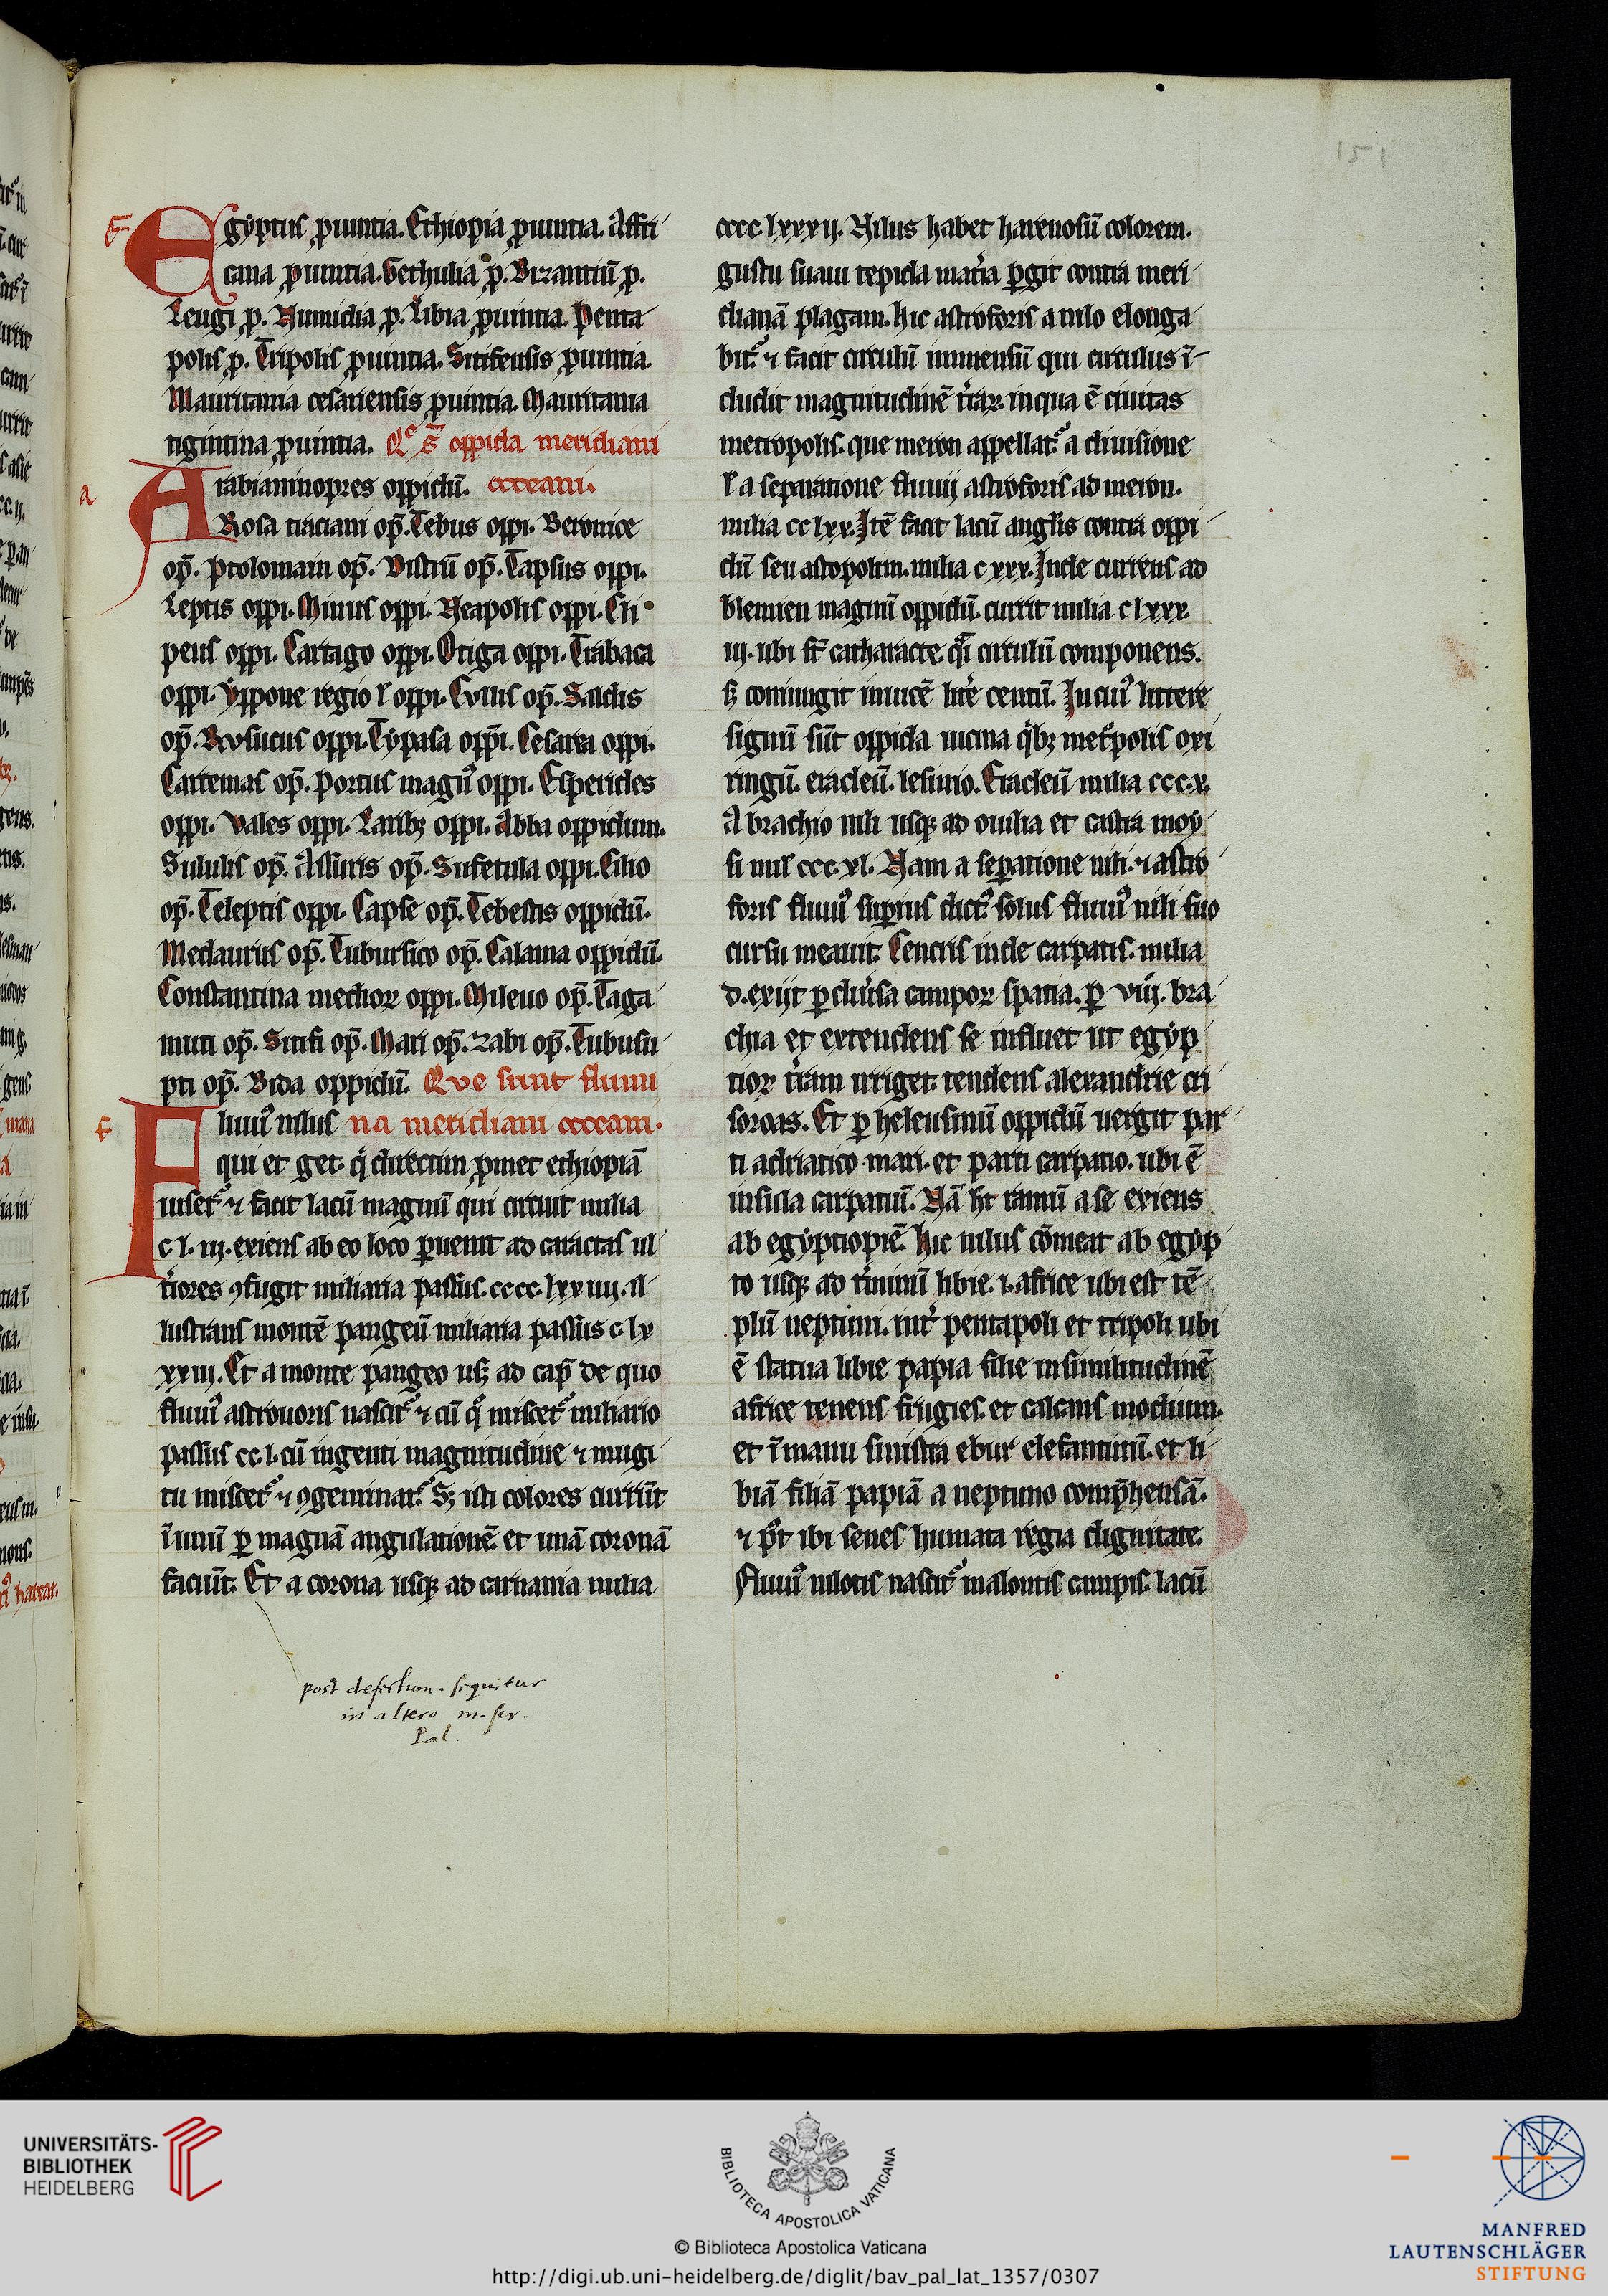 151
Egyptus ꝓuintia. Ethiopia ꝓuintia. Affri
cana ꝓuintia. Gethulia ꝓ. Bizantiū ꝓ.
Leugi ꝓ. Numidia ꝓ. Libia ꝓuintia. Penta
polis ꝓ. Tripolis ꝓuintia. Sitifensis ꝓuintia.
Mauritania cesariensis ꝓuintia. Mauritania
tigintina ꝓuintia. Qᵉ s̄ oppida meridiani
Arabianinopres oppidū. occeani.
Rosa traciani op̄. Tebus oppi. Beronice
op̄. Ptolomain op̄. Distrū op̄. Tapsus oppi.
Leptis oppi. Minus oppi. Neapolis oppi. Cli
peus oppi. Cartago oppi. Otiga oppi. Trabaca
oppi. Yppone regio l oppi. Collis op̄. Saldis
op̄. Rosucus oppi. Typasa oppi. Cesarea oppi.
Cartemas op̄. Portus magꝰ oppi. Esperides
oppi. Vales oppi. Laribꝫ oppi. Abba oppidum.
Sululis op̄. Assuris op̄. Sufetula oppi. Cilio
op̄. Teleptis oppi. Capse op̄. Tebestis oppidū.
Medaurus op̄. Tubursico op̄. Calama oppidū.
Constantina medioꝝ oppi. Mileuo op̄. Taga
muti op̄. Sitifi op̄. Mari op̄. Zabi op̄. Tubusu
pti op̄. Bida oppidū. Que sunt flumi
Fluuiꝰ nilus na meridiani occeani.
qui et geͭ. q̇ directim ꝓmet ethiopiā
uiseͭ ⁊ facit lacū magnū qui circuit milia
c l. iij. exiens ab eo loco ꝑuenit ad caractas ul
tiores ꝯfugit miliaria passus. cccc. lxxiiij. il
lustrans montē pangeū miliaria passus c. lx
xxiij. Et a monte pangeo usꝫ ad cap̄ de quo
fluuiꝰ astrouoris nasciͭ ⁊ cū qͦ misceͭ miliario
passus cc. l. cū ingenti magnitudine ⁊ mugi
tu misceͭ ⁊ ꝯgeminaͭ. Sꝫ isti colores currūt
ī unū ꝑ magnā angulationē. et unā coronā
faciūt. Et a corona usqꝫ ad carnania milia
post defectum. sequitur
in altero m. scr.
Pal.
cccc. lxxxij. Nilus habet harenosū colorem.
gustu suaui tepida mat̄ia ꝑgit contra meri
dianā plagam. hic astroforis a nilo elonga
biͭ ⁊ facit circulū immensū qui circulus ī
cludit magnitudinē t̄iaꝝ. in qua ē ciuitas
metropolis. que meron appellaͭ. a diuisione
l a separatione fluuij astroforis ad meron.
milia cc lxx. Itē facit lacū anglis contra oppi
dū seu astopolim. milia c xxx. Inde currens ad
blemien magnū oppidū. currit milia c lxxx.
iij. ubi sͭ catharacte. q̄i circulū componens.
sꝫ coniungit inuicē litē centū. In cuiꝰ littere
signū sūt oppida uicina q̇bꝫ met̄polis oxi
ringū. eracleū. lesinio. Eracleū milia ccc. x.
A brachio nili usqꝫ ad ouilia et castra moy
si mil ccc. xl. Nam a seꝑatione nili. ⁊ astro
foris fluuiꝰ suꝑius dicͭꝰ. solus fluuiꝰ nili suo
cursu meauit. Cencris inde carpatis. milia
d. exijt ꝑ diūsa campoꝝ spatia. ꝑ viij. bra
chia et extendens se influet ut egyp
tioꝝ t̄iam irriget. tendens alexandrie cri
soroas. Et ꝑ heleusinū oppidū uergit par
ti adriatico mari. et parti carpatio. ubi ē
insula carpatiū. Nā hͭ ramū a se exiens
ab egyptiopiē. hic nilus cōmeat ab egyp
to usqꝫ ad t̄minū libie. i. africe ubi est tē
plū neptuni. int̄ pentapoli et tripoli ubi
ē statua libie papia filie in similitudinē
africe tenens frugies. et calcans modium.
et ī manu sinistra ebur elefantinū. et li
biā filiā papiā a neptuno comp̄hensā.
⁊ pͦt ibi senes humata regia dignitate.
Fluuiꝰ nilotis nasciͭ malontis campis. lacū
UNIVERSITÄTS-
BIBLIOTHEK
HEIDELBERG
BIBLIOTECA APOSTOLICA VATICANA
© Biblioteca Apostolica Vaticana
http://digi.ub.uni-heidelberg.de/diglit/bav_pal_lat_1357/0307
MANFRED
LAUTENSCHLÄGER
STIFTUNG